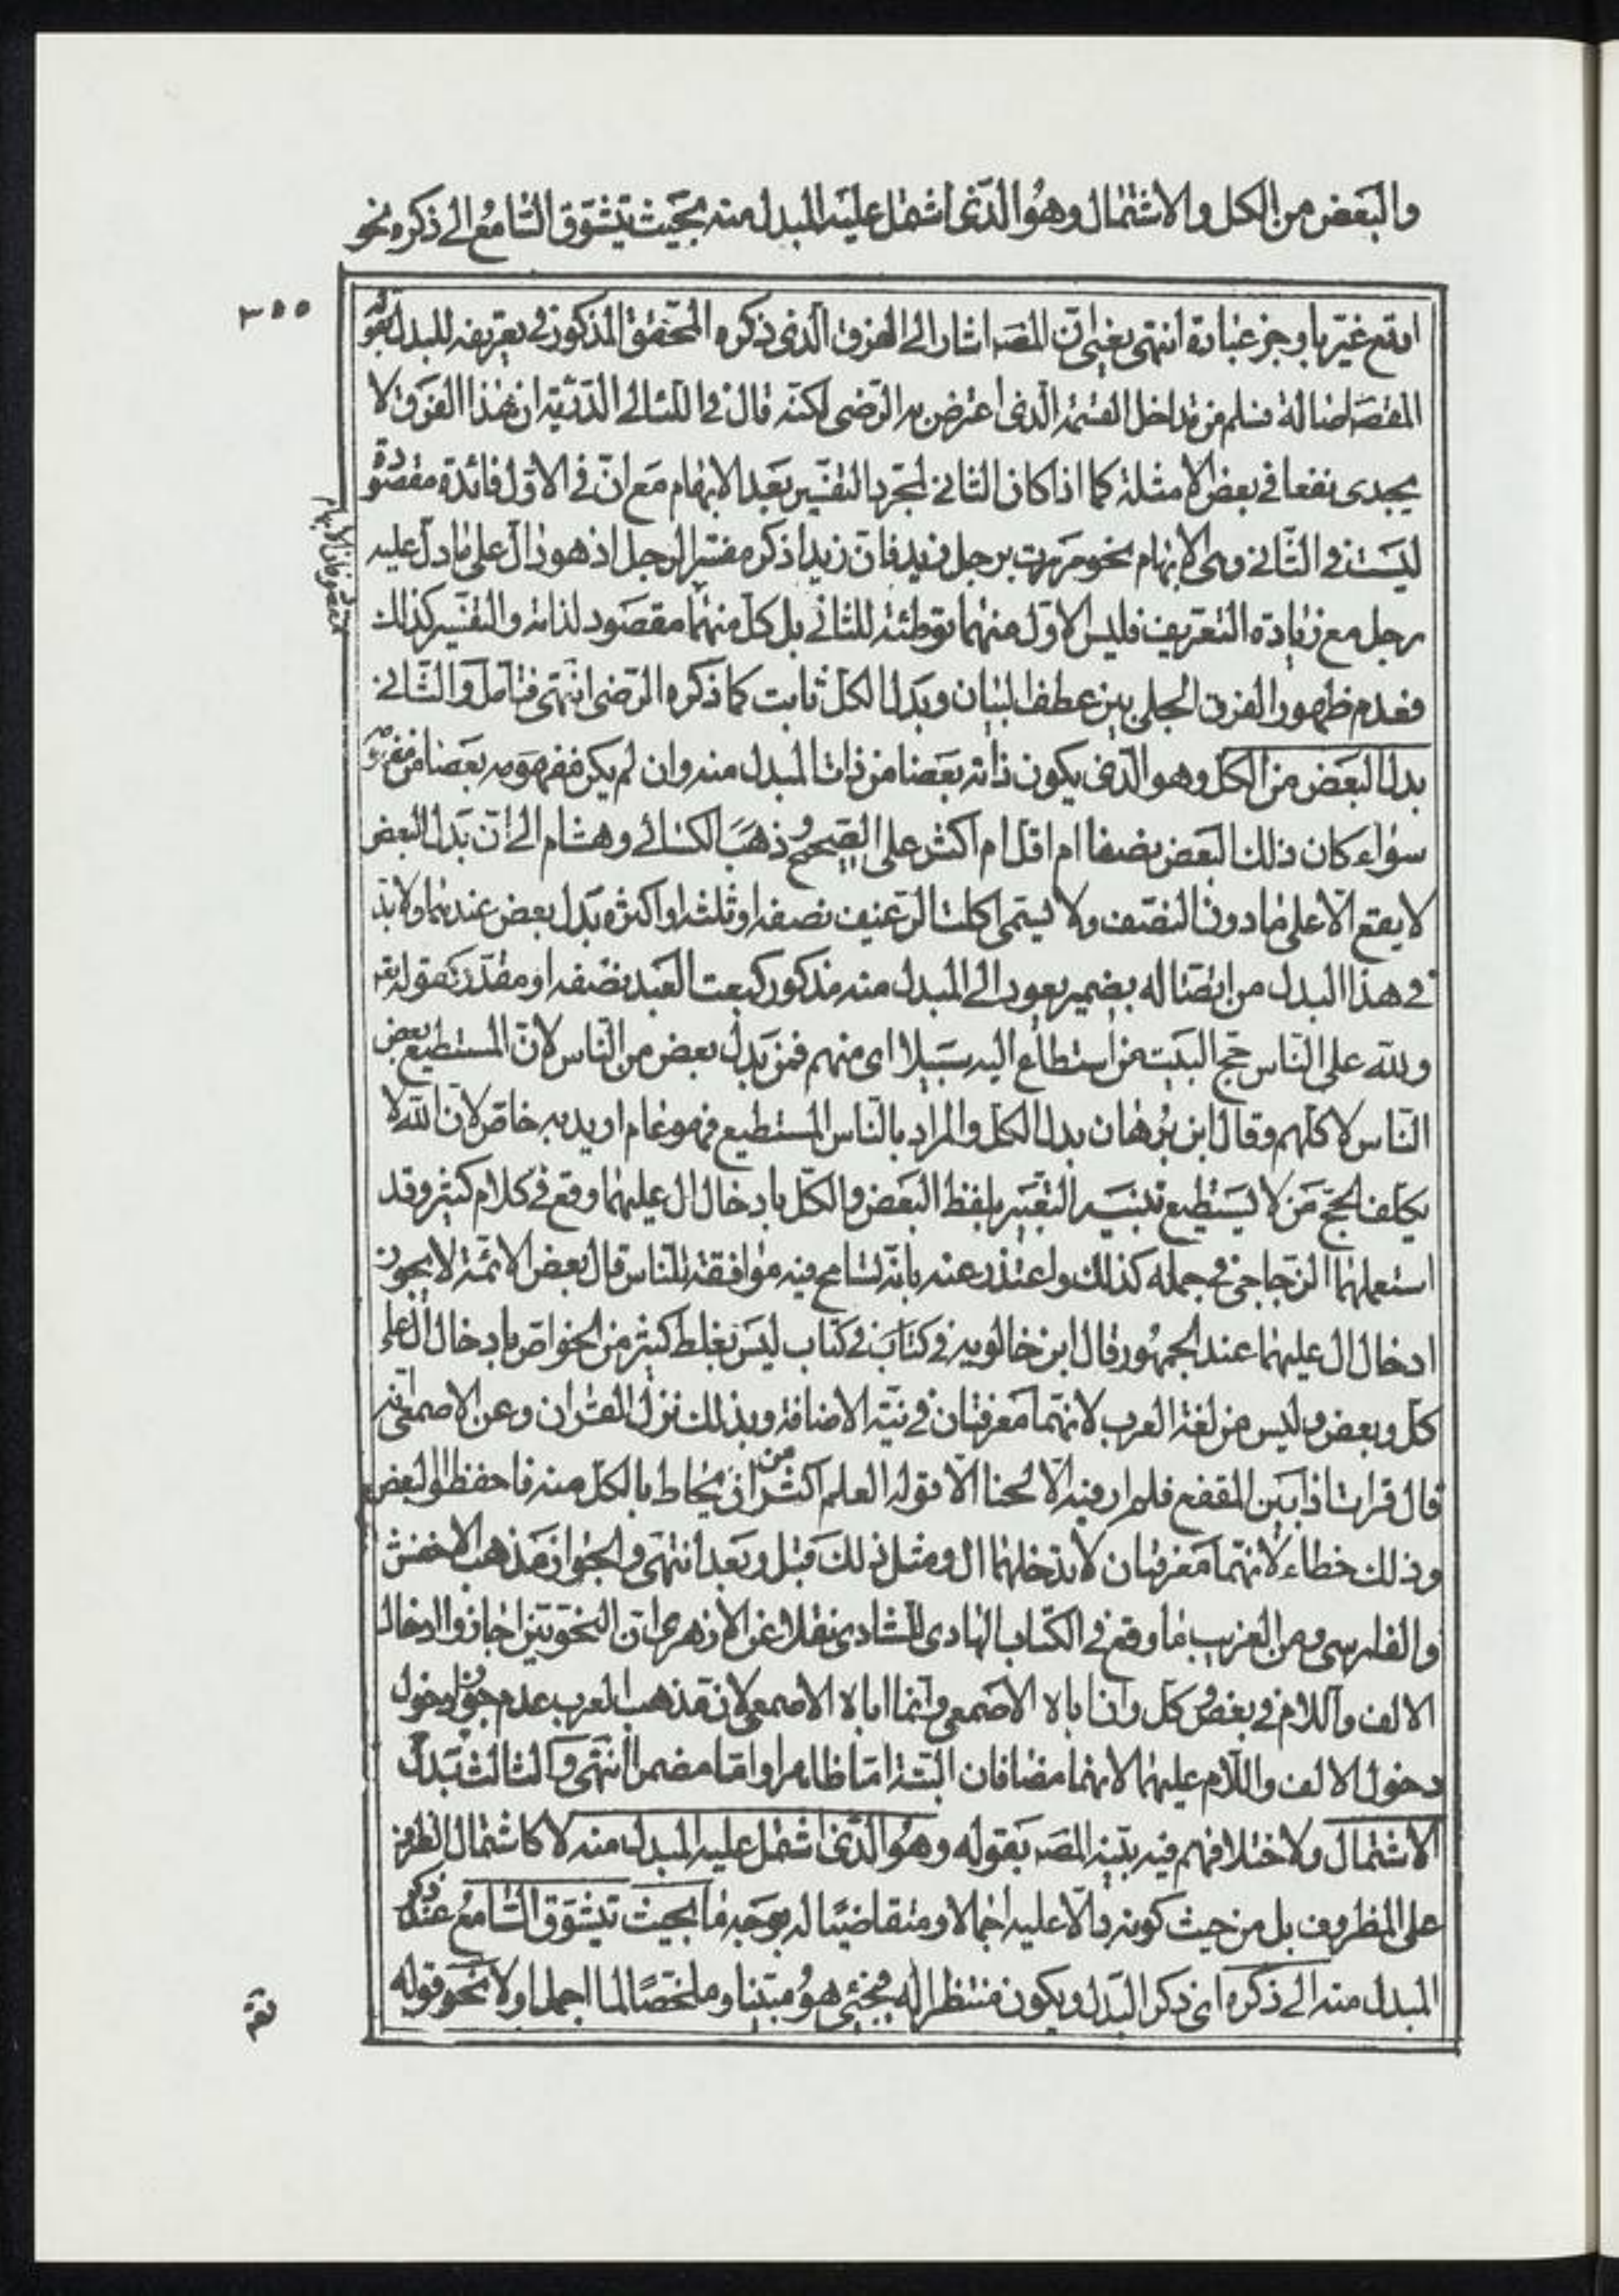 والبعض من الكل والاشتمال وهو الذى اشتمل عليه المبدل منه بحيث يتشوق السامع الى ذكره نحو
٣٥٥
اوتبع غيره باوجز عبادة انتهى يعنى ان المصه اشار الى الفرق الذى ذكره المحقق المذكور فى تعريفه للبدل بقوله
المقصود اصالة فسلم من تداخل القسمة الذى اعترض به الرضى لكنه قال فى اللئالى الدنية ان هذا الفرق لا
يجدى نفعا فى بعض الامثلة كما اذا كان الثانى لمجرد التفسير بعد الابهام مع ان فى الاول فائدة مقصودة
ليست فى الثانى وهى الابهام نحو مررت برجل زيد فان زيدا ذكر مفسرا لرجل اذ هو دال على ما دل عليه
رجل مع زيادة التعريف فليس الاول منهما توطئة للثانى بل كل منهما مقصود لذاته والتفسير كذلك
فعدم ظهور الفرق الجلى بين عطف البيان وبدل الكل ثابت كما ذكره الرضى انتهى فتامل والثانى
بدل البعض من الكل وهو الذى يكون ذاته بعضا من ذات المبدل منه وان لم يكن مفهومه بعضا من مفهومه
سواء كان ذلك البعض نصفا ام اقل ام اكثر على الصحيح وذهب الكسائى وهشام الى ان بدل البعض
لا يقع الا على ما دون النصف ولا يسمى اكلت الرغيف نصفه او ثلثه او اكثره بدل بعض عندهما ولا بد
فى هذا البدل من اتصاله بضمير يعود الى المبدل منه مذكور كبعت العبد نصفه او مقدر كقوله تعه
ولله على الناس حج البيت من استطاع اليه سبيلا اى منهم فمن بدل بعض من الناس لان المستطيع بعض
الناس لا كلهم وقال ابن برهان بدل الكل والمراد بالناس المستطيع فهو عام اريد به خاص لان الله لا
يكلف الحج من لا يستطيع تنبيه التعبير بلفظ البعض والكل بادخال ال عليهما وقع فى كلام كثير وقد
استعملهما الزجاجى فى جمله كذلك واعتذر عنه بانه تسامح فيه موافقة للناس قال بعض الائمة لا يجوز
ادخال ال عليهما عند الجمهور قال ابن خالويه فى كتاب فى كتاب ليس تغلط كثير من الخواص بادخال ال على
كل وبعض وليس من لغة العرب لانهما معرفتان فى نية الاضافة وبذلك نزل القران وعن الاصمعى انه
قال قرات اداب بن المقفع فلم ار فيه الا لحنا الا قوله العلم اكثر من ان يحاط بالكل منه فاحفظوا البعض
وذلك خطاء لانهما معرفتان لا تدخلهما ال ومثل ذلك قبل وبعد انتهى والجواز مذهب الاخفش
والفارسى ومن الغريب ما وقع فى الكتاب الهادى للشادى نقلا عن الازهرى ان النحويين اجازوا ادخال
الالف واللام فى بعض وكل وان اباه الاصمعى وانما اباه الاصمعى لان مذهب العرب عدم جواز دخول
دخول الالف واللام عليهما لانهما مضافان البتة اما ظاهرا واما مضمرا انتهى والثالث بدل
الاشتمال ولاختلافهم فيه بينه المصه بقوله وهو الذى اشتمل عليه المبدل منه لا كاشتمال الظرف
على المظروف بل من حيث كونه دالا عليه اجمالا ومتقاضيا له بوجه ما بحيث يتشوق السامع عند ذكر
المبدل منه الى ذكره اى ذكر البدل ويكون منتظرا له فيجئ هو مبينا وملخصا لما اجمل اولا نحو قوله
تعه